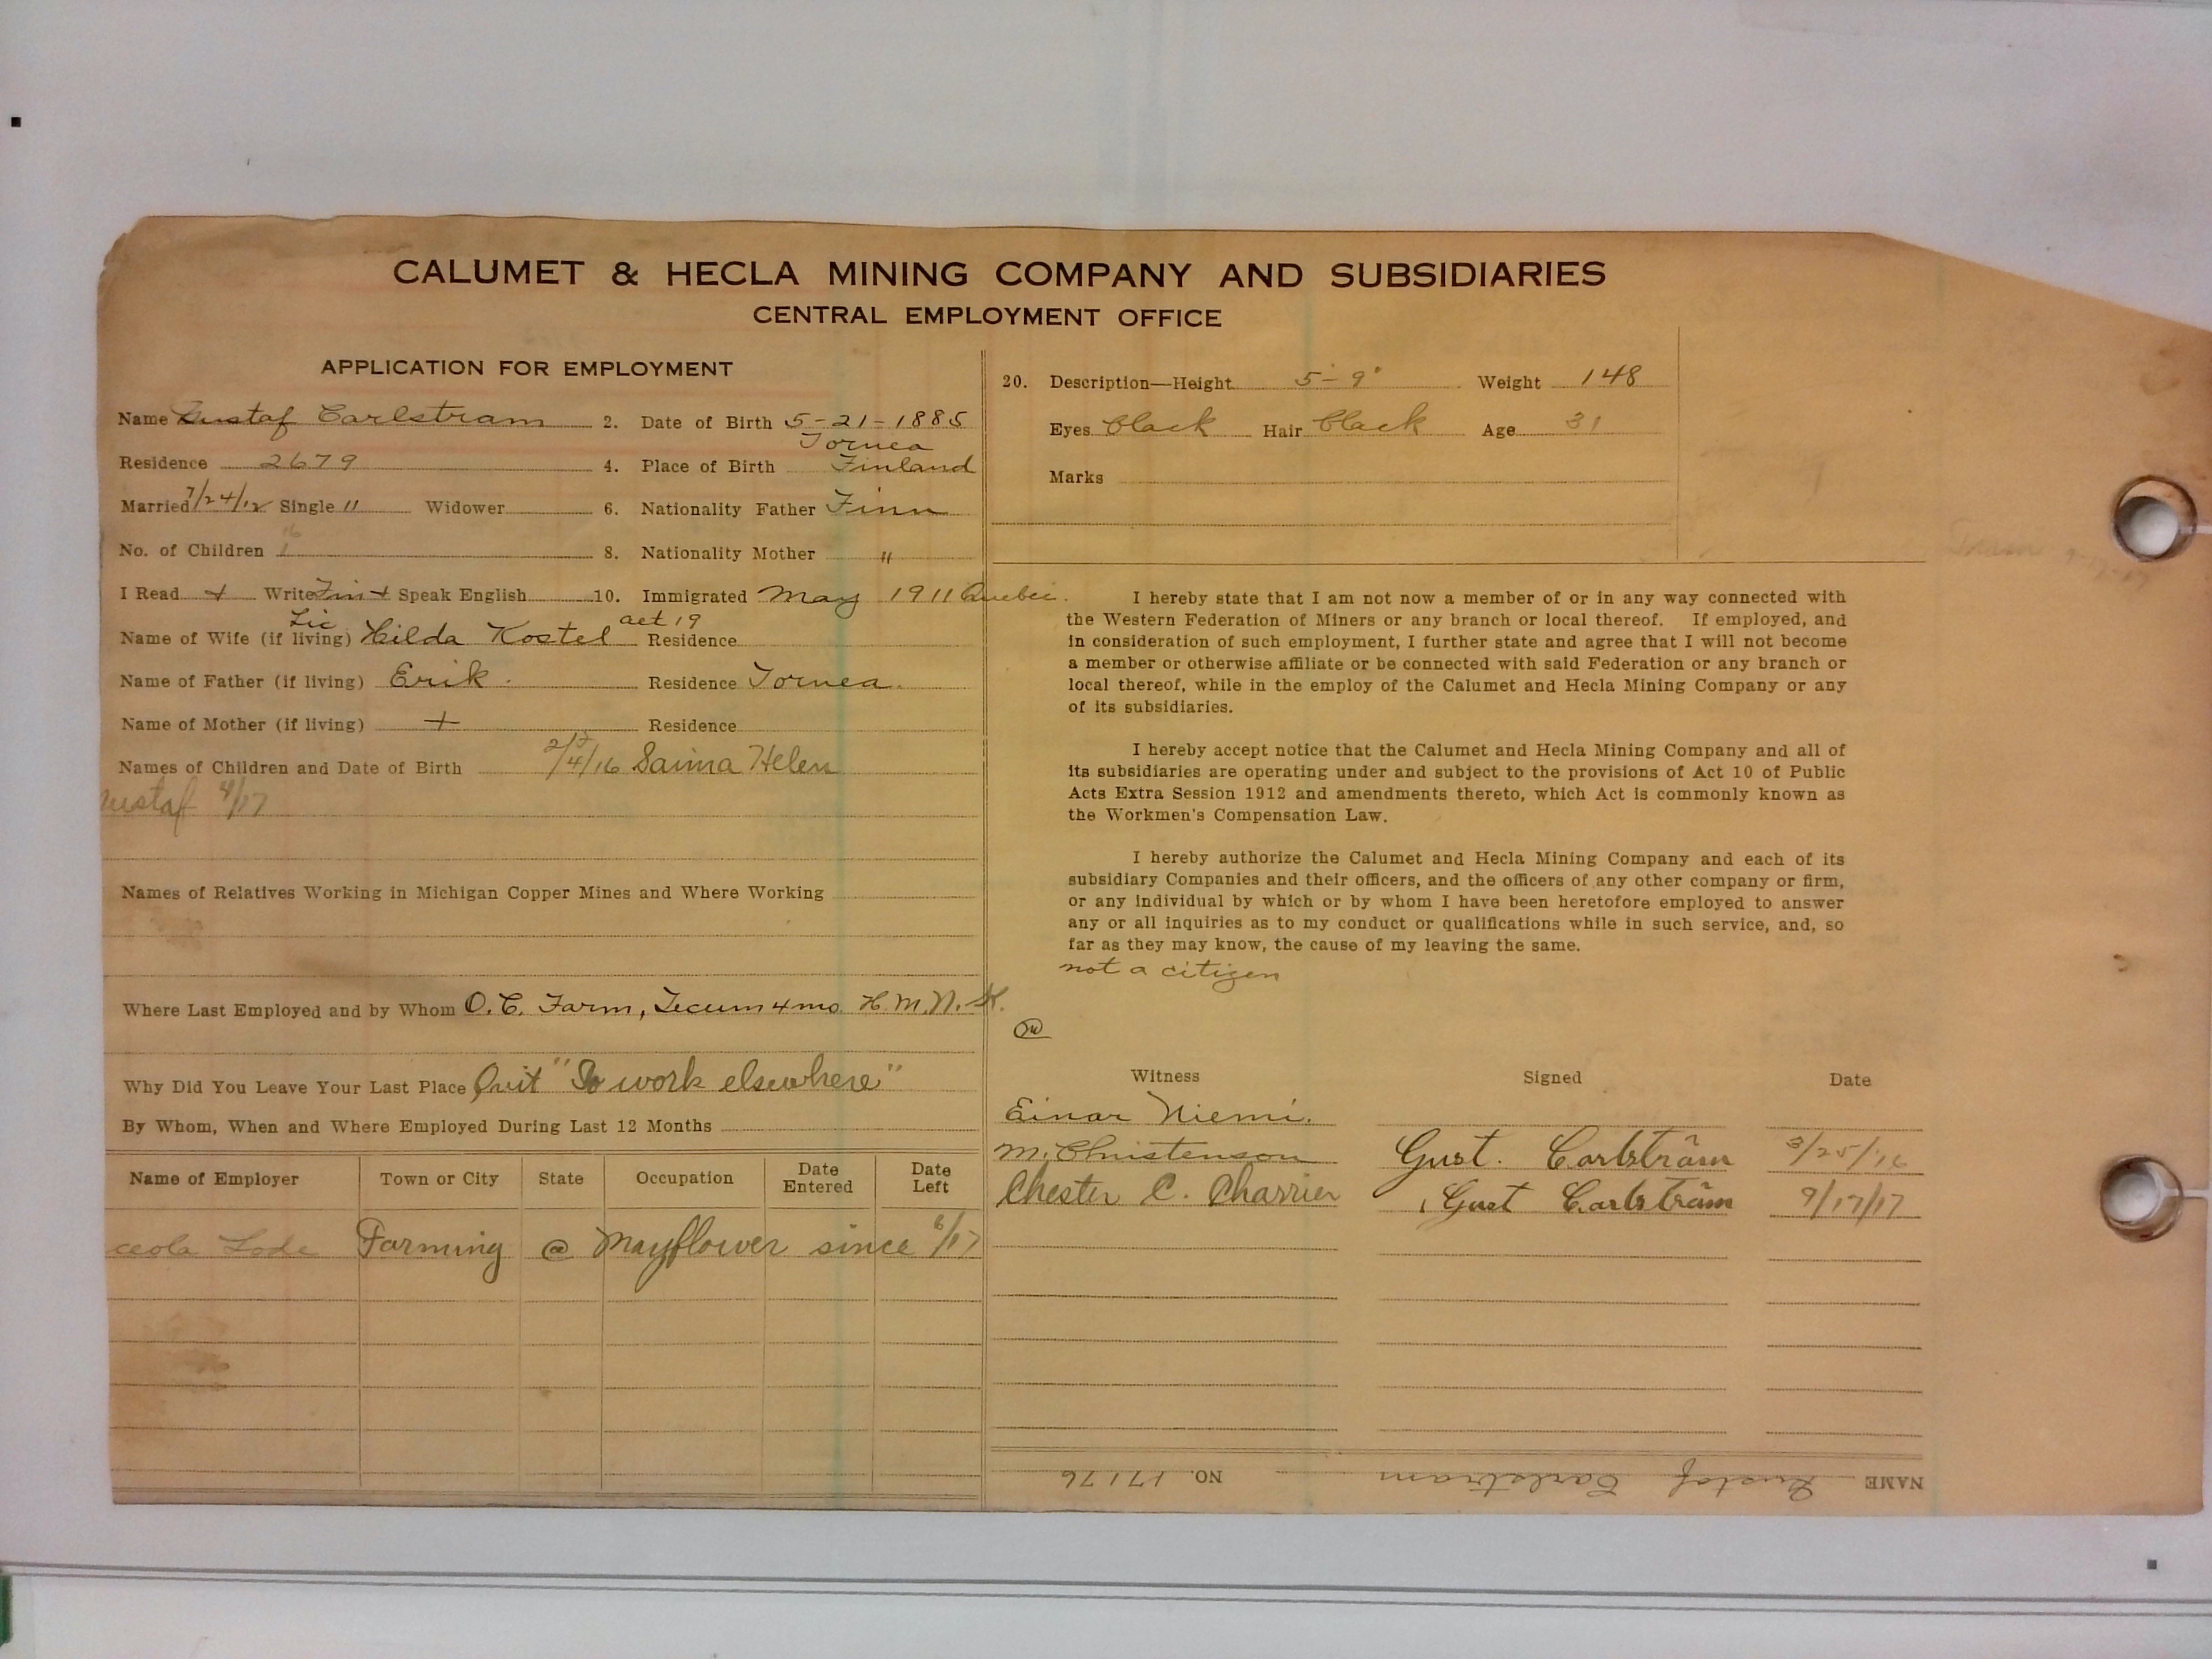 CALUMET & HECLA MINING COMPANY AND SUBSIDIARIES
CENTRAL EMPLOYMENT OFFICE
APPLICATION FOR EMPLOYMENT
Name Gustaf Carlstram 2. Date of Birth 5-21-1885
Tornea
Residence 2679 4. Place of Birth Finland
Married 7/24/12 Single 11 Widower 6. Nationality Father Finn
No. of Children 1 8. Nationality Mother "
I Read + Write Fin + Speak English 10. Immigrated May 1911 Quebec.
Name of Wife (if living) Hilda Kostel aet 19 Residence
Name of Father (if living) Erik. Residence Tornea.
Name of Mother (if living) + Residence
Names of Children and Date of Birth 2/4/16 Saima Helen
Names of Relatives Working in Michigan Copper Mines and Where Working
Where Last Employed and by Whom O.C. Farm, Tecum 4 mo H.M.N.
Why Did You Leave Your Last Place Quit "To work elsewhere"
By Whom, When and Where Employed During Last 12 Months
Name of Employer Town or City State Occupation Date Entered Date Left
ceola Lode Farming @ Mayflower since 6/17
20. Description—Height 5-9" Weight 148
Eyes black Hair black Age 31
Marks
I hereby state that I am not now a member of or in any way connected with
the Western Federation of Miners or any branch or local thereof. If employed, and
in consideration of such employment, I further state and agree that I will not become
a member or otherwise affiliate or be connected with said Federation or any branch or
local thereof, while in the employ of the Calumet and Hecla Mining Company or any
of its subsidiaries.
I hereby accept notice that the Calumet and Hecla Mining Company and all of
its subsidiaries are operating under and subject to the provisions of Act 10 of Public
Acts Extra Session 1912 and amendments thereto, which Act is commonly known as
the Workmen's Compensation Law.
I hereby authorize the Calumet and Hecla Mining Company and each of its
subsidiary Companies and their officers, and the officers of any other company or firm,
or any individual by which or by whom I have been heretofore employed to answer
any or all inquiries as to my conduct or qualifications while in such service, and, so
far as they may know, the cause of my leaving the same.
not a citizen
Witness Signed Date
Einar Niemi.
M. Christenson Gust. Carlström 3/25/16
Chester C. Charrier Gust Carlström 9/17/17
NAME Gustaf Carlstram NO. 17176